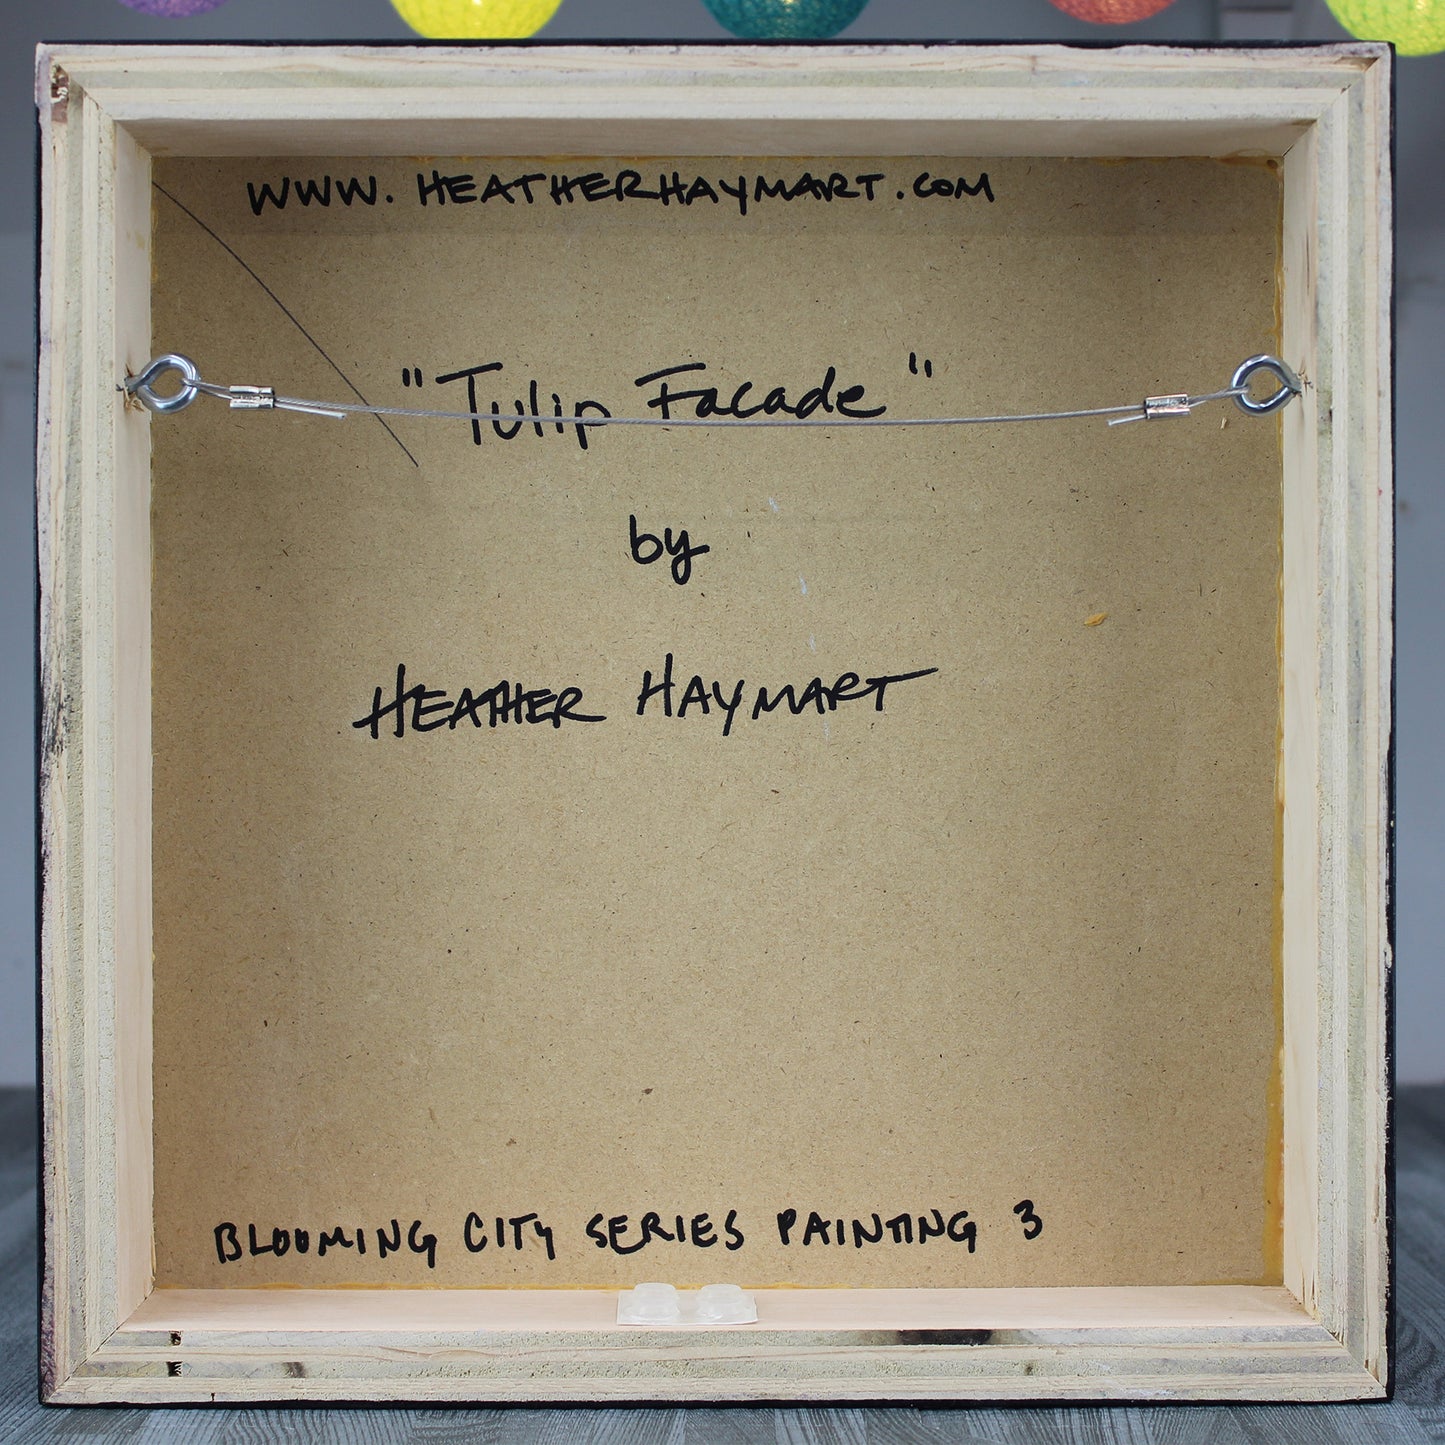 WWW.HEATHERHAYMART.COM
"Tulip Facade"
by
HEATHER HAYMART
BLOOMING CITY SERIES PAINTING 3